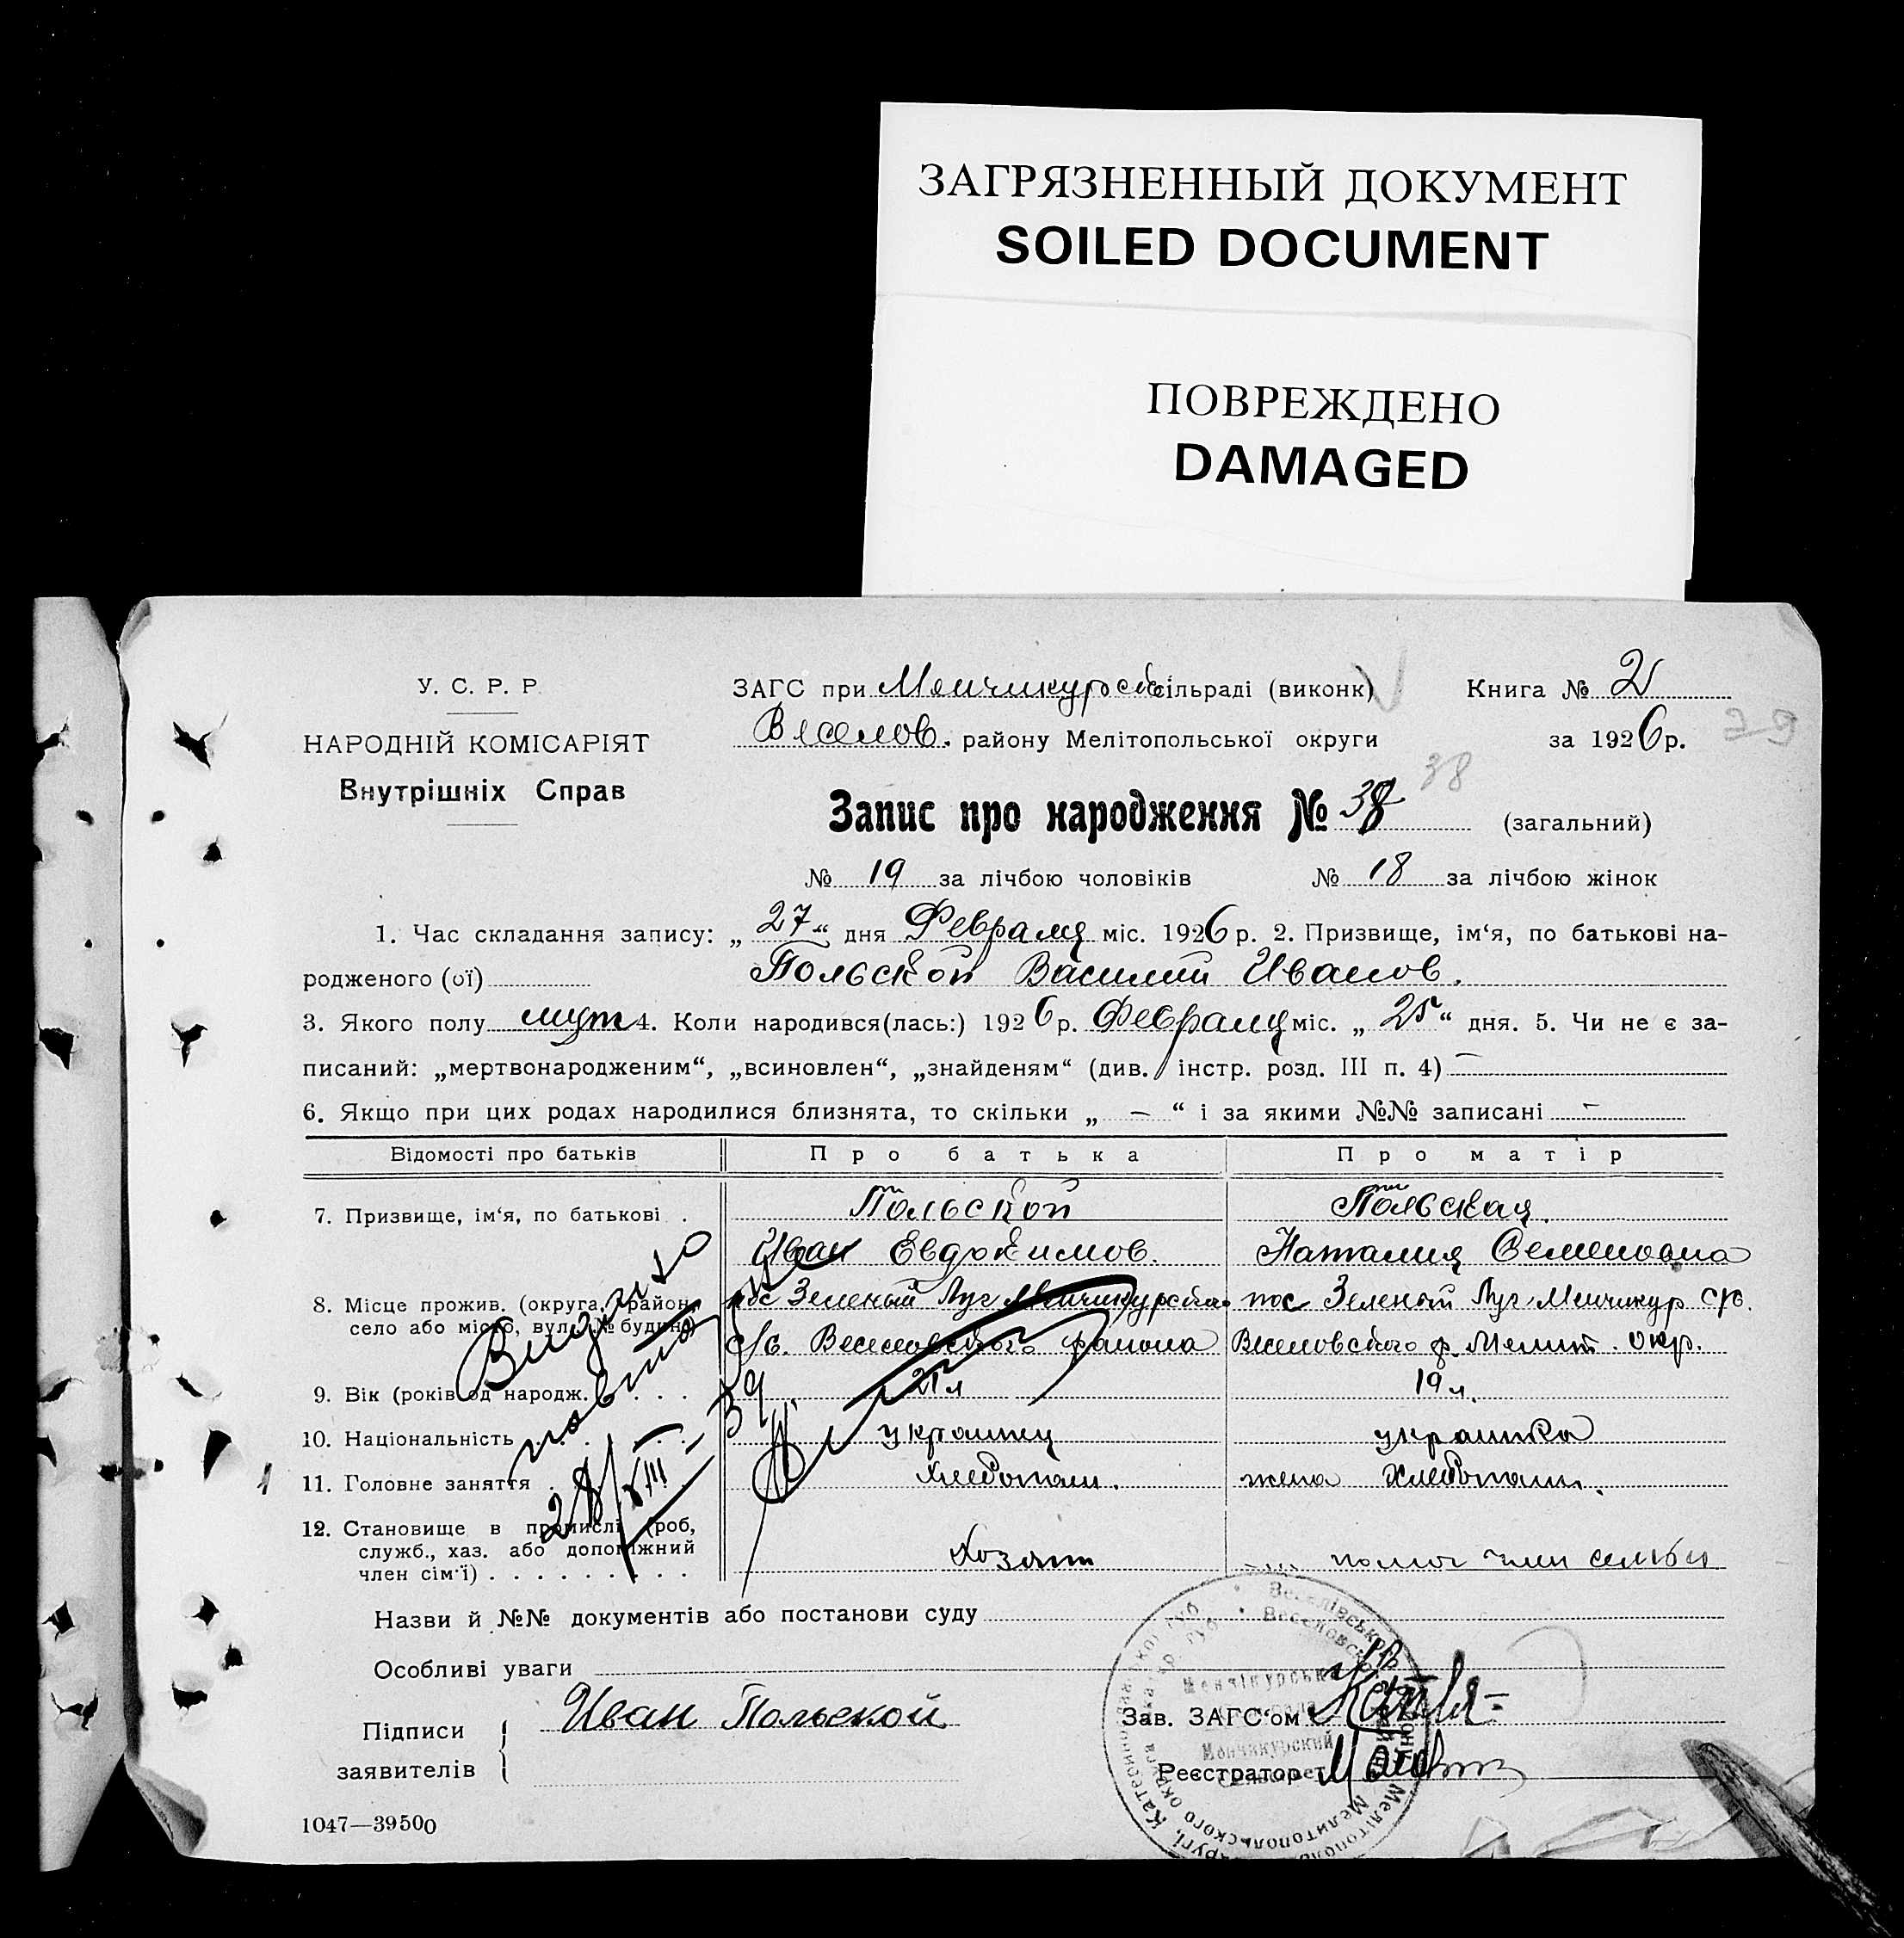 ЗАГРЯЗНЕННЫЙ ДОКУМЕНТ
SOILED DOCUMENT
ПОВРЕЖДЕНО
DAMAGED
У. С. Р. Р.
НАРОДНІЙ КОМІСАРІЯТ
Внутрішніх Справ
ЗАГС при Менчикурск сільраді (виконк)
Веселов. району Мелітопольської округи
Книга № 2
за 1926 р.
39
38
Запис про народження № 38 (загальний)
№ 19 за лічбою чоловіків № 18 за лічбою жінок
1. Час складання запису: „27“ дня Февраля міс. 1926 р. 2. Призвище, ім‘я, по батькові на-
родженого (ої) Польской Василий Иванов.
3. Якого полу муж 4. Коли народився(лась:) 1926 р. Февраля міс. „25“ дня. 5. Чи не є за-
писаний: „мертвонародженим“, „всиновлен“, „знайденям“ (див. інстр. розд. III п. 4) —
6. Якщо при цих родах народилися близнята, то скільки „ — “ і за якими №№ записані —
Відомості про батьків Про батька Про матір
7. Призвище, ім‘я, по батькові . Польской Польская
Иван Евдокимов. Наталия Семеновна
8. Місце прожив. (округа, район, пос Зеленый Луг Менчикурска пос Зеленый Луг Менчикур с/с.
село або місто, вул. № будин) с/с. Веселовского района Веселовского р. Мелит. окр.
9. Вік (років од народж. 21 л 19 л.
10. Національність украинец украинка
11. Головне заняття хлебопаш. жена хлебопаш.
12. Становище в промислі (роб,
служб., хаз. або допоміжний
член сім'ї) Хозяин помог член семьи
Видано
повторне
28/VIII–39
Назви й №№ документів або постанови суду
Особливі уваги
Підписи заявителів Иван Польской
Зав. ЗАГС‘ом
Реєстратор
Менчікурська
Менчикурский
1047—39500